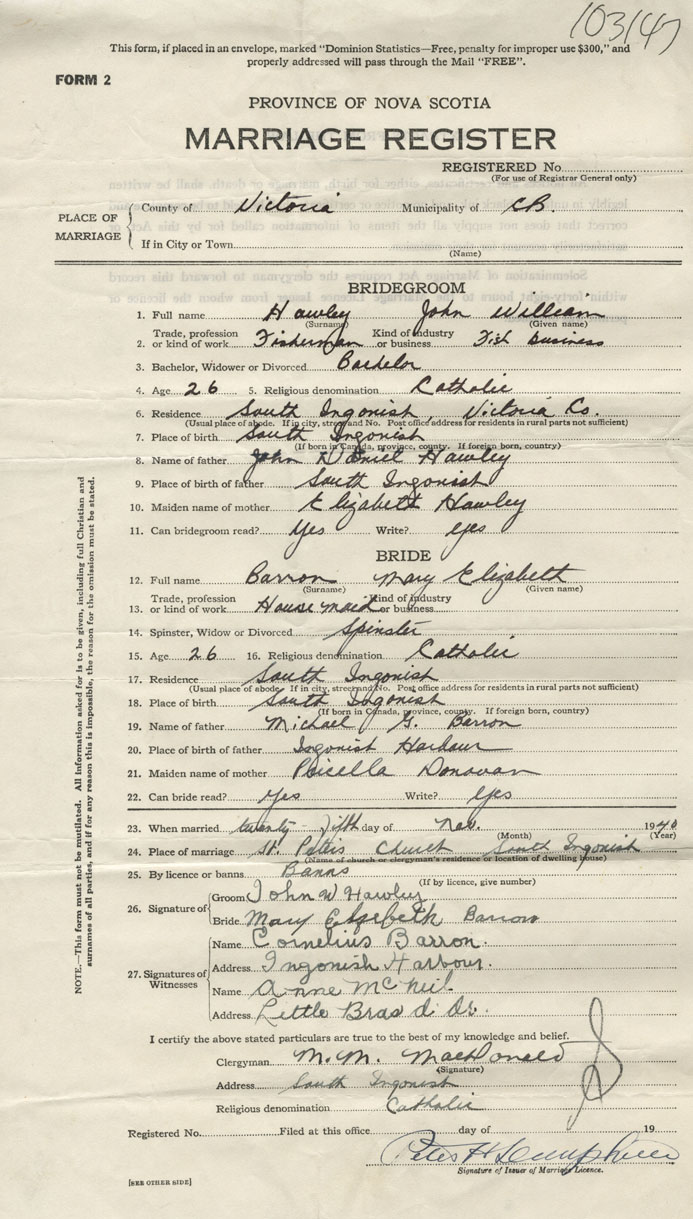 103147
This form, if placed in an envelope, marked "Dominion Statistics—Free, penalty for improper use $300," and
properly addressed will pass through the Mail "FREE".
FORM 2
PROVINCE OF NOVA SCOTIA
MARRIAGE REGISTER
REGISTERED No.
(For use of Registrar General only)
PLACE OF MARRIAGE
County of Victoria Municipality of C.B.
If in City or Town
(Name)
BRIDEGROOM
1. Full name Hawley John William
(Surname) (Given name)
2. Trade, profession or kind of work Fisherman Kind of industry or business Fish business
3. Bachelor, Widower or Divorced Bachelor
4. Age 26 5. Religious denomination Catholic
6. Residence South Ingonish, Victoria Co.
(Usual place of abode. If in city, street and No. Post office address for residents in rural parts not sufficient)
7. Place of birth South Ingonish
(If born in Canada, province, county. If foreign born, country)
8. Name of father John Daniel Hawley
9. Place of birth of father South Ingonish
10. Maiden name of mother Elizabeth Hawley
11. Can bridegroom read? Yes Write? Yes
BRIDE
12. Full name Barron Mary Elizabeth
(Surname) (Given name)
13. Trade, profession or kind of work House maid Kind of industry or business
14. Spinster, Widow or Divorced Spinster
15. Age 26 16. Religious denomination Catholic
17. Residence South Ingonish
(Usual place of abode If in city, street and No. Post office address for residents in rural parts not sufficient)
18. Place of birth South Ingonish
(If born in Canada, province, county. If foreign born, country)
19. Name of father Michael G. Barron
20. Place of birth of father Ingonish Harbour
21. Maiden name of mother Pricella Donovan
22. Can bride read? Yes Write? Yes
23. When married twenty-fifth day of Nov. 1940
(Month) (Year)
24. Place of marriage St. Peters Church South Ingonish
(Name of church or clergyman's residence or location of dwelling house)
25. By licence or banns Banns
(If by licence, give number)
26. Signature of
Groom John W Hawley
Bride Mary Elizebeth Barron
27. Signatures of Witnesses
Name Cornelius Barron.
Address Ingonish Harbour.
Name Anne McNeil
Address Little Bras d'
I certify the above stated particulars are true to the best of my knowledge and belief.
Clergyman M. M. MacDonald
(Signature)
Address South Ingonish
Religious denomination Catholic
Registered No. Filed at this office day of 19
Peter H
Signature of Issuer of Marriage Licence.
[SEE OTHER SIDE]
NOTE.—This form must not be mutilated. All information asked for is to be given, including full Christian and
surnames of all parties, and if for any reason this is impossible, the reason for the omission must be stated.